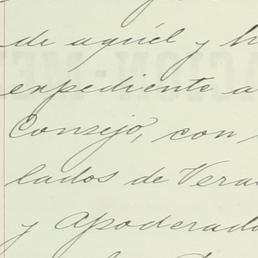 de aquél y h
expediente a
Consejo, con
lados de Vera
y apoderado